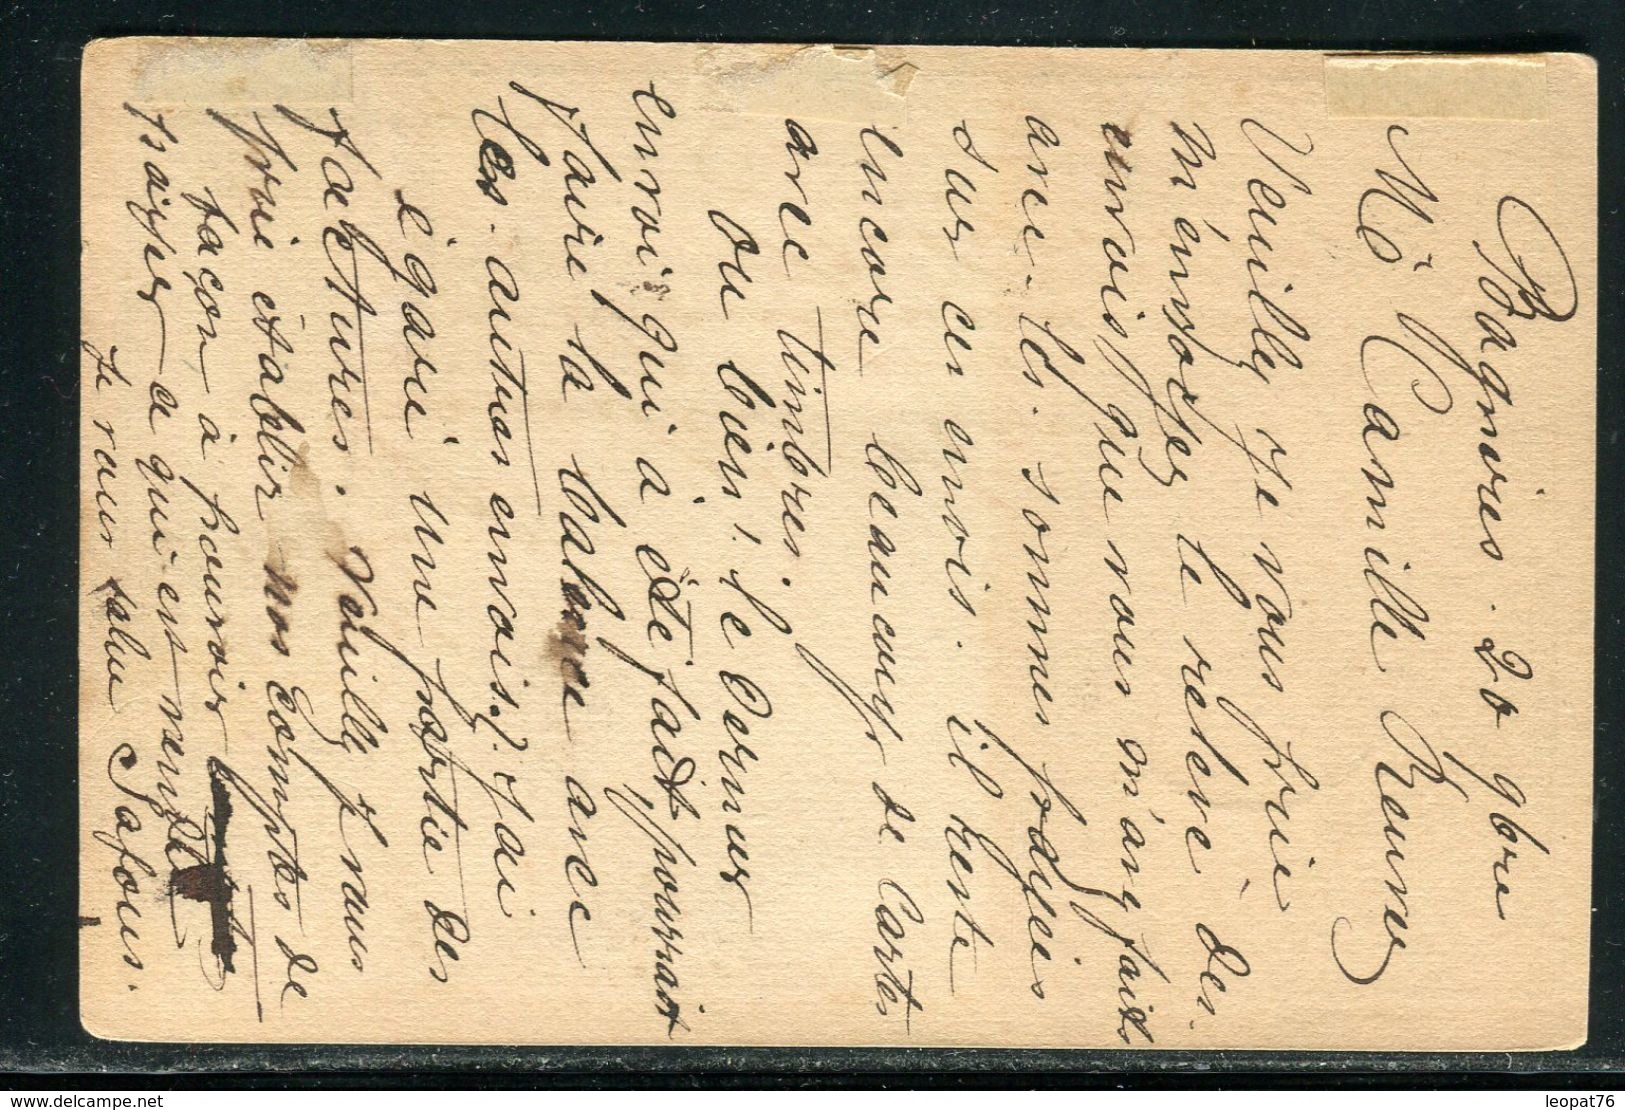 Bagnères. 20 9bre
Mr Camille Reuney
Veuillez je vous prie
m'envoyer le relevé des
envois que vous m'avez faits
avec les sommes portées
sur ces envois. il reste
encore beaucoup de Cartes
avec timbres.
ou bien! le dernier
envoi qui à été fait pourrait
faire la balance avec
les autres envois? j'ai
égaré une partie des
factures. Veuillez vous
prie établir nos Comptes de
façon à pouvoir
payer ce qui est vendu
je vous salue Safous.
www.delcampe.net
leopat76